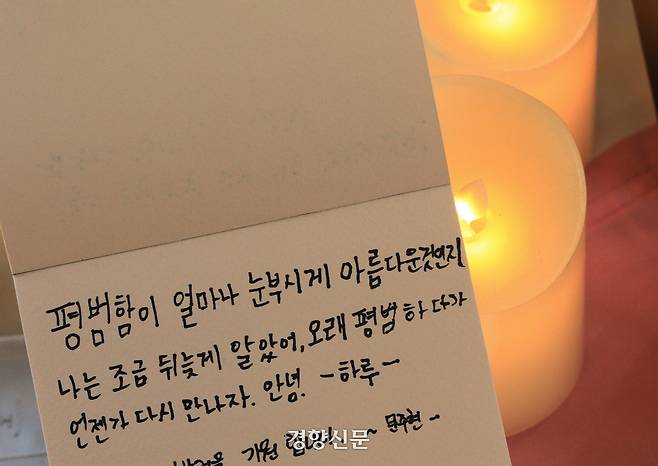 평범함이 얼마나 눈부시게 아름다운것인지
나는 조금 뒤늦게 알았어, 오래 평범하다가
언젠가 다시 만나자. 안녕. -하루-
기원
경향신문